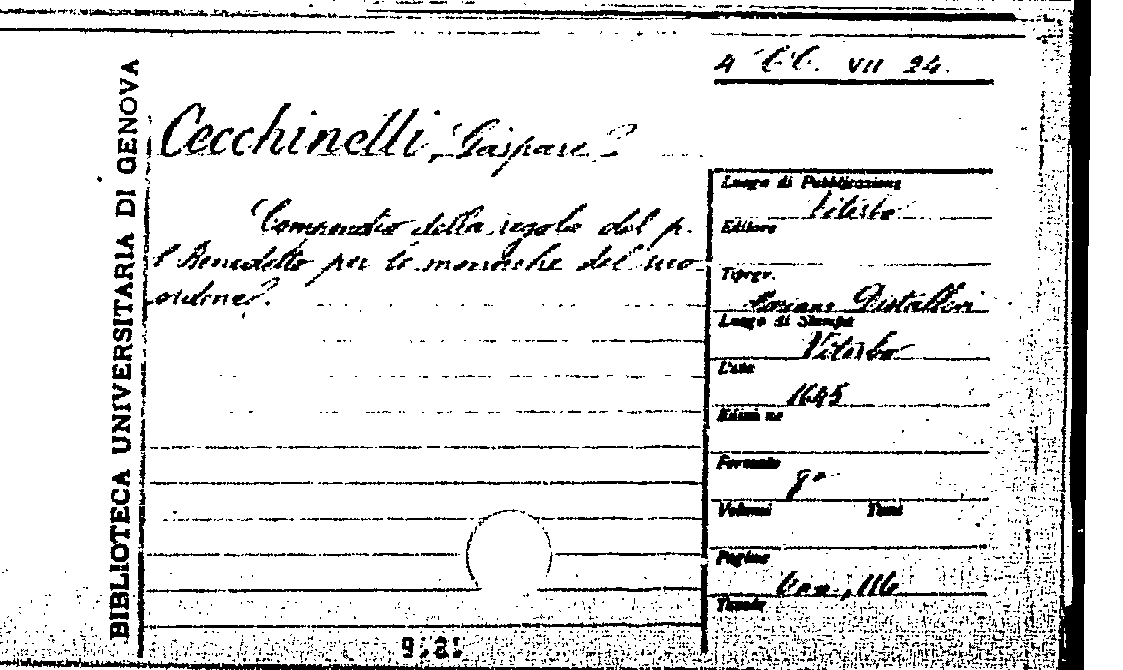 4 CC. VII 24.
BIBLIOTECA UNIVERSITARIA DI GENOVA
Cecchinelli, Gaspare
Compendio della regola del p.
S. Benedetto per le monache del suo
ordine.
Luogo di Pubblicazione
Viterbo
Editore
Tipogr.
Mariano Diotallevi
Luogo di Stampa
Viterbo
Data
1645
Edizione
Formato
8°
Volumi Tomi
Pagine
116
Tavole